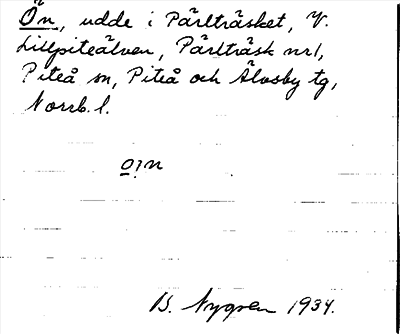 Ön, udde i Pärlträsket, V.
Lillpiteälven, Pärlträsk nr1,
Piteå sn, Piteå och Älvsby tg,
Norrb. l.
B. Nygren 1934.